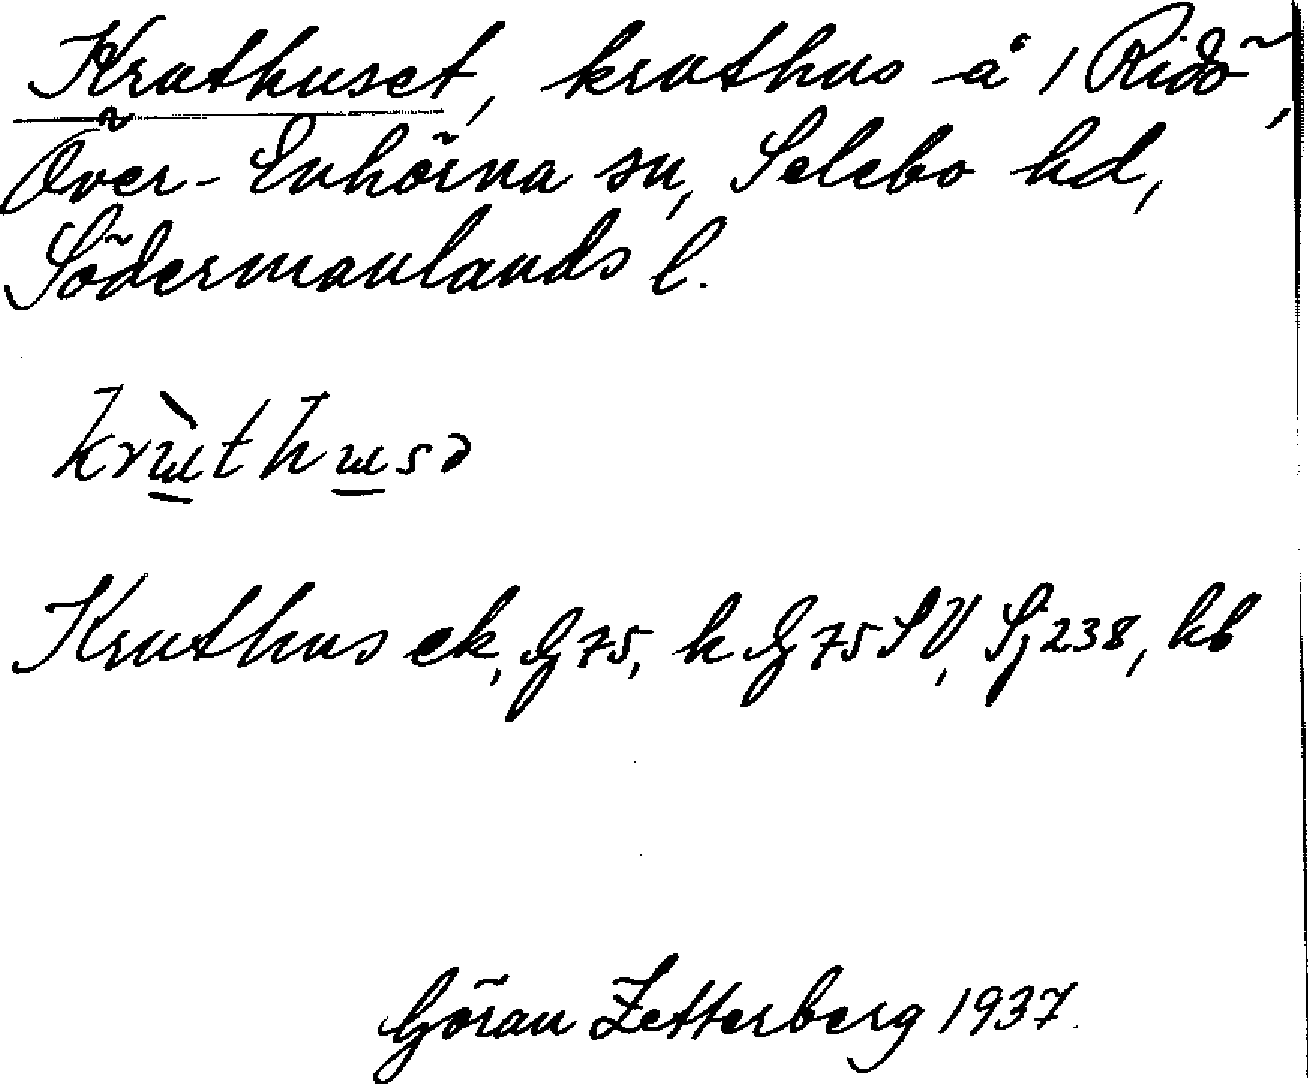 Kruthuset, kruthus å 1 Ridö,
Över-Enhörna sn, Selebo hd,
Södermanlands l.
krùthusə
Kruthus ek, G 75, k G 75 SV, Sj 238, hb
Göran Zetterberg 1937.